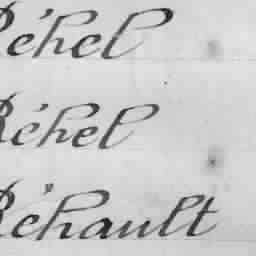 Réhel
Réhel
Réhault